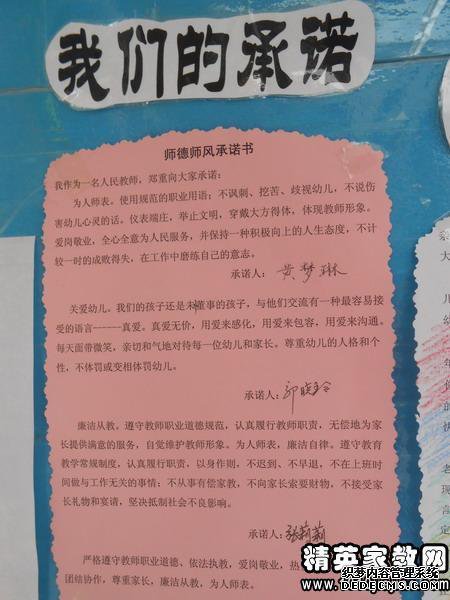 我们的承诺
师德师风承诺书
我作为一名人民教师，郑重向大家承诺：
为人师表。使用规范的职业用语；不讽刺、挖苦、歧视幼儿，不说伤
害幼儿心灵的话。仪表端庄，举止文明，穿戴大方得体，体现教师形象。
爱岗敬业，全心全意为人民服务，并保持一种积极向上的人生态度，不计
较一时的成败得失，在工作中磨练自己的意志。
承诺人：黄梦琳
关爱幼儿。我们的孩子还是未懂事的孩子，与他们交流有一种最容易接
受的语言------真爱。真爱无价，用爱来感化，用爱来包容，用爱来沟通。
每天面带微笑，亲切和气地对待每一位幼儿和家长。尊重幼儿的人格和个
性，不体罚或变相体罚幼儿。
承诺人：邓晓玲
廉洁从教。遵守教师职业道德规范，认真履行教师职责，无偿地为家
长提供满意的服务，自觉维护教师形象。为人师表，廉洁自律。遵守教育
教学常规制度，认真履行职责，以身作则，不迟到、不早退，不在上班时
间做与工作无关的事情；不从事有偿家教，不向家长索要财物，不接受家
长礼物和宴请，坚决抵制社会不良影响。
承诺人：张莉莉
严格遵守教师职业道德、依法执教，爱岗敬业，热
团结协作，尊重家长，廉洁从教、为人师表。
精英家教网
织梦内容管理系统
DEDECMS.COM